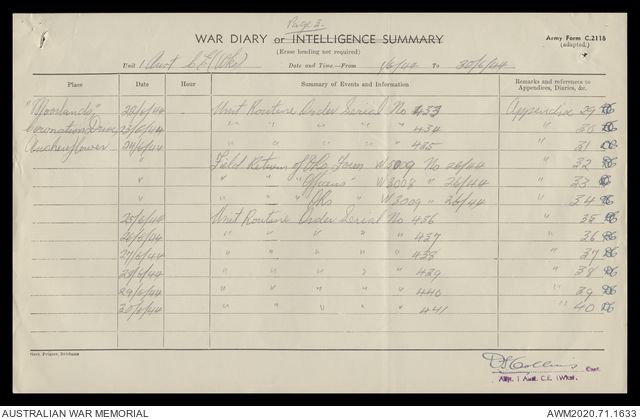 Page 3.
WAR DIARY or INTELLIGENCE SUMMARY
Army Form C.2118
(adapted.)
(Erase heading not required)
Unit 1 Aust C.E. (Wks) Date and Time—From 1/6/44 To 30/6/44
Place Date Hour Summary of Events and Information Remarks and references to Appendices, Diaries, &c.
"Moorlands" 22/6/44 Unit Routine Order Serial No 433 Appendice 29
Coronation Drive 23/6/44 " " " " " 434 " 30
Auchenflower 24/6/44 " " " " " 435 " 31
" Field Return of O/Rs Form W3009 No 26/44 " 32
" " " "Officers" W3008 " 26/44 " 33
" " " " O/Rs " W3009 " 26/44 " 34
25/6/44 Unit Routine Order Serial No 436 " 35
26/6/44 " " " " " 437 " 36
27/6/44 " " " " " 438 " 37
28/6/44 " " " " " 439 " 38
29/6/44 " " " " " 440 " 39
30/6/44 " " " " " 441 " 40
Collins Capt.
Adjt. 1 Aust. C.E. (Wks).
AUSTRALIAN WAR MEMORIAL AWM2020.71.1633